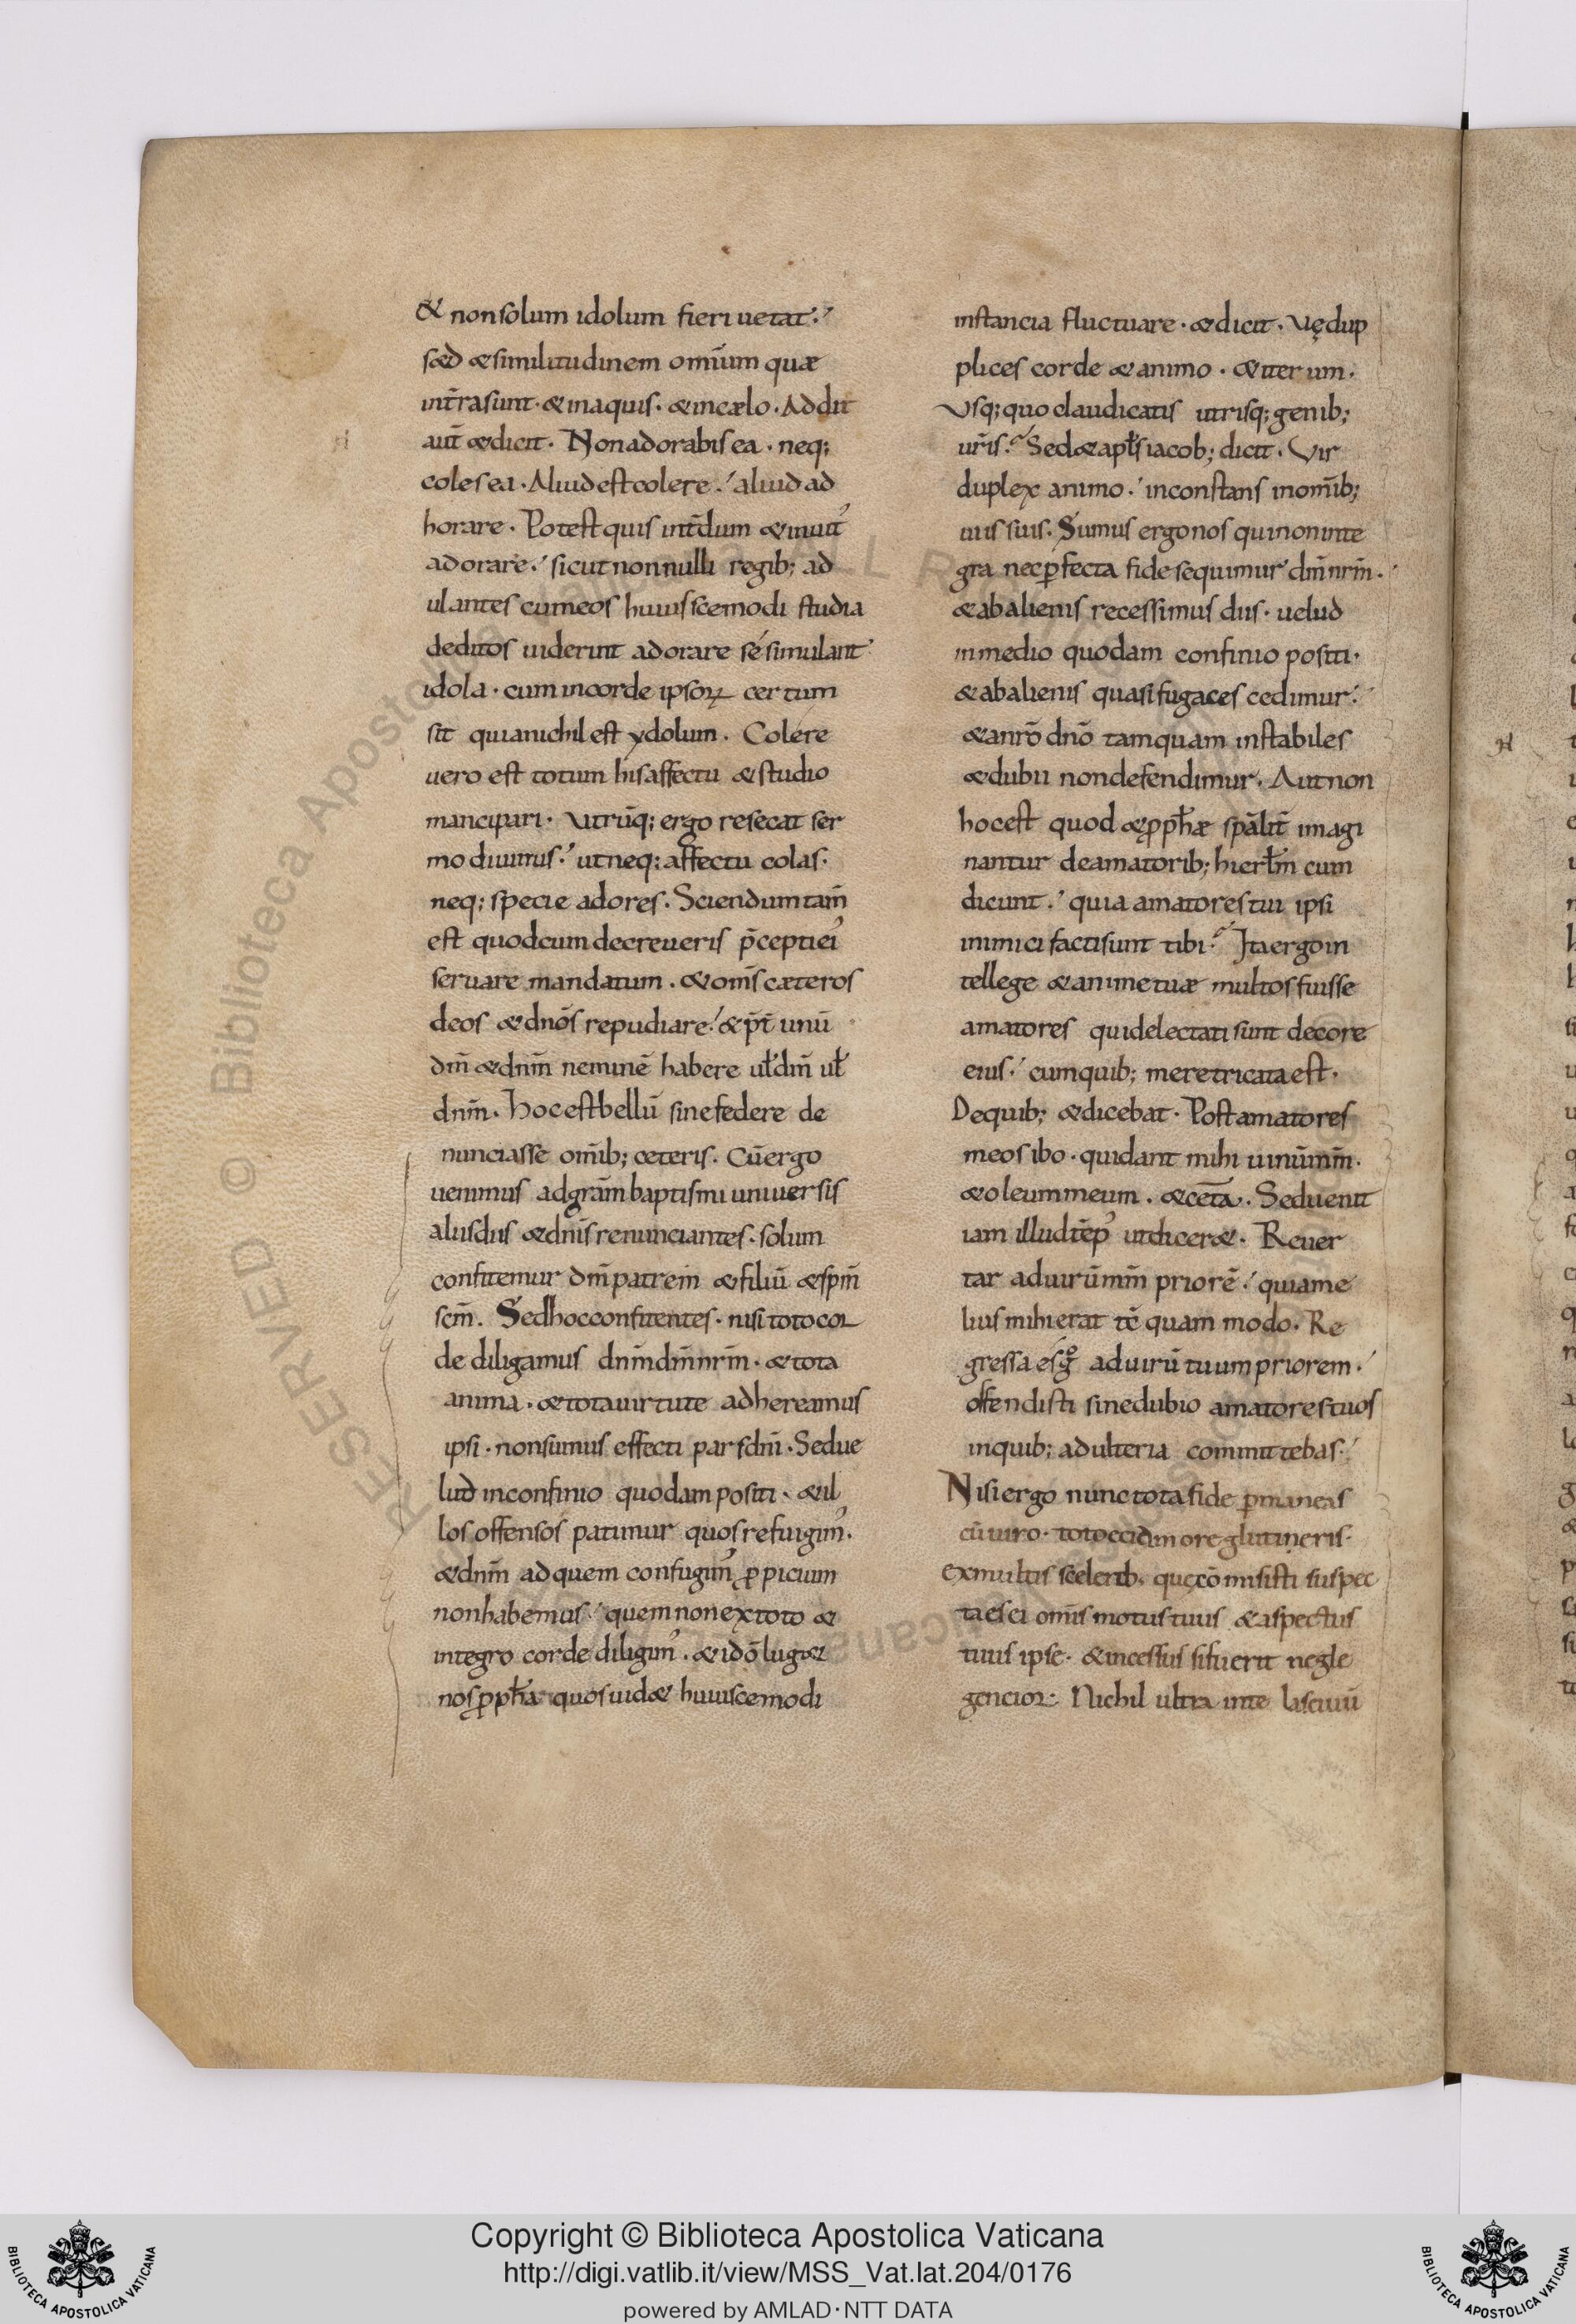 & non solum idolum fieri uetat.
sæd & similitudinem omiũm quæ
int̃ra sunt. & in aquis. & in cælo. Addit
aut̃ & dicit. Non adorabis ea. neq;
coles ea. Aliud est colere. aliud ad
horare. Potest quis int̃dum & inuit᾽
adorare. sicut nonnulli regib; ad
ulantes cum eos huiuscemodi studia
deditos uiderint adorare sé simulant
idola. cum in corde ipsoꝝ certum
sit quia nichil est ydolum. Colére
uero est totum his affectu & studio
mancipari. Utrũq; ergo resecat ser
mo diuinus. ut neq; affectu colas.
neq; specie adores. Sciendum tam̃
est quod cum decreueris p̃cepti ei᾽
seruare mandatum. & om̃s cæteros
deos & dnõs repudiare. & p̃t̃ unũ
dm̃ & dnm̃ neminẽ habere uł dm̃ uł
dnm̃. hoc est bellũ sine federe de
nunciasse om̃ib; ceteris. Cũ ergo
uenimus ad grãm baptismi uniuersis
aliis diis & dnĩs renunciantes. solum
confitemur dm̃ patrem & filiũ & spm̃
scm̃. Sed hoc confitentes. nisi toto cor
de diligamus dnm̃ dm̃ nrm̃. & tota
anima. & tota uirtute adhereamus
ipsi. non sumus effecti pars dnĩ. Sed ue
lud in confinio quodam positi. & il
los offensos patimur quos refugim᾽.
& dnm̃ ad quem confugim᾽ ꝓpicium
non habemus. quem non ex toto &
integro corde diligim᾽. & idõ lug&
nos ꝓph̃a quos uid& huiuscemodi
instancia fluctuare. & dicit. Vę dup
plices corde & animo. & iterum.
Vsq; quo claudicatis utrisq; genib;
ur̃is. Sed & apłs iacob; dicit. Vir
duplex animo. inconstans in om̃ib;
uiis suis. Sumus ergo nos qui non inte
gra nec ꝑfecta fide sequimur dm̃ nrm̃.
& ab alienis recessimus diis. uelud
in medio quodam confinio positi.
& ab alienis quasi fugaces cedimur.
& a nrõ dnõ tamquam instabiles
& dubii non defendimur. Aut non
hoc est quod & ꝓph̃æ spãlit̃ imagi
nantur de amatorib; hierłm cum
dicunt. quia amatores tui ipsi
inimici facti sunt tibi. Ita ergo in
tellege & anime tuæ multos fuisse
amatores qui delectati sunt decore
eius. cum quib; meretricata est.
De quib; & dicebat. Post amatores
meos ibo. qui dant mihi uinũ mm̃.
& oleum meum. & cet̃a. Sed uenit
iam illud tẽp᾽ ut dicer&. Reuer
tar ad uirũ mm̃ priorẽ. quia me
lius mihi erat tc̃ quam modo. Re
gressa es g̊ ad uirũ tuum priorem.
offendisti sine dubio amatores tuos
in quib; adulteria committebas.
Nisi ergo nunc tota fide ꝑmaneas
cũ uiro. toto eidem ore glutineris.
ex multis scelerib. quę cõmisisti suspec
ta es ei om̃is motus tuus & aspectus
tuus ipse. & incessus si fuerit negle
gencior. Nichil ultra in te lasciuũ
Copyright © Biblioteca Apostolica Vaticana
http://digi.vatlib.it/view/MSS_Vat.lat.204/0176
powered by AMLAD·NTT DATA
BIBLIOTECA APOSTOLICA VATICANA
BIBLIOTECA APOSTOLICA VATICANA